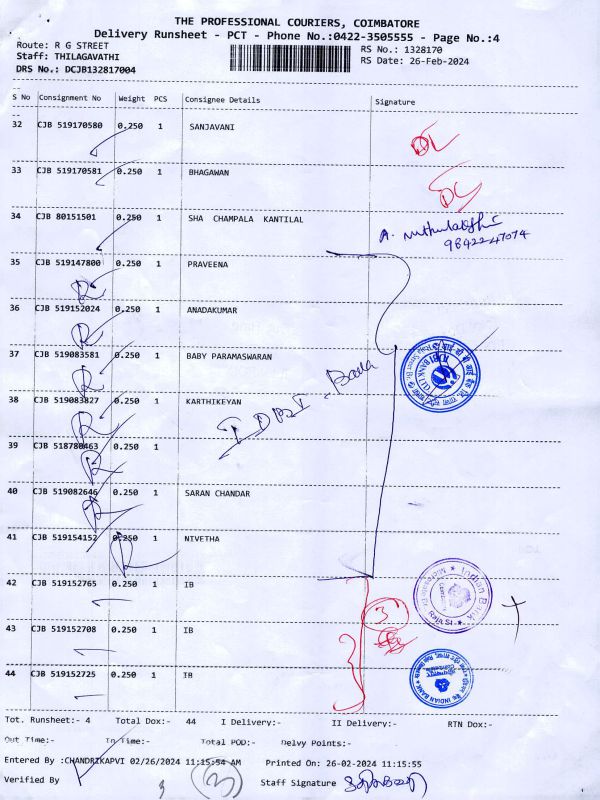 THE PROFESSIONAL COURIERS, COIMBATORE
Delivery Runsheet - PCT - Phone No.:0422-3505555 - Page No.:4
Route: R G STREET
RS No.: 1328170
Staff: THILAGAVATHI
RS Date: 26-Feb-2024
DRS No.: DCJB132817004
S No Consignment No Weight PCS Consignee Details Signature
32 CJB 519170580 0.250 1 SANJAVANI DL
33 CJB 519170581 0.250 1 BHAGAWAN DL
34 CJB 80151501 0.250 1 SHA CHAMPALA KANTILAL
9842247074
35 CJB 519147800 0.250 1 PRAVEENA
R
36 CJB 519152024 0.250 1 ANADAKUMAR
R
37 CJB 519083581 0.250 1 BABY PARAMASWARAN
R
38 CJB 519083827 0.250 1 KARTHIKEYAN
R
IDBI - Bank
39 CJB 518780463 0.250 1
R
40 CJB 519082646 0.250 1 SARAN CHANDAR
R
41 CJB 519154152 0.250 1 NIVETHA
R
42 CJB 519152765 0.250 1 IB
Indian Bank
3
43 CJB 519152708 0.250 1 IB
44 CJB 519152725 0.250 1 IB
INDIAN BANK
Tot. Runsheet:- 4 Total Dox:- 44 I Delivery:- II Delivery:- RTN Dox:-
Out Time:- In Time:- Total POD:- Delvy Points:-
Entered By :CHANDRIKAPVI 02/26/2024 11:15:54 AM Printed On: 26-02-2024 11:15:55
Verified By 3 Staff Signature